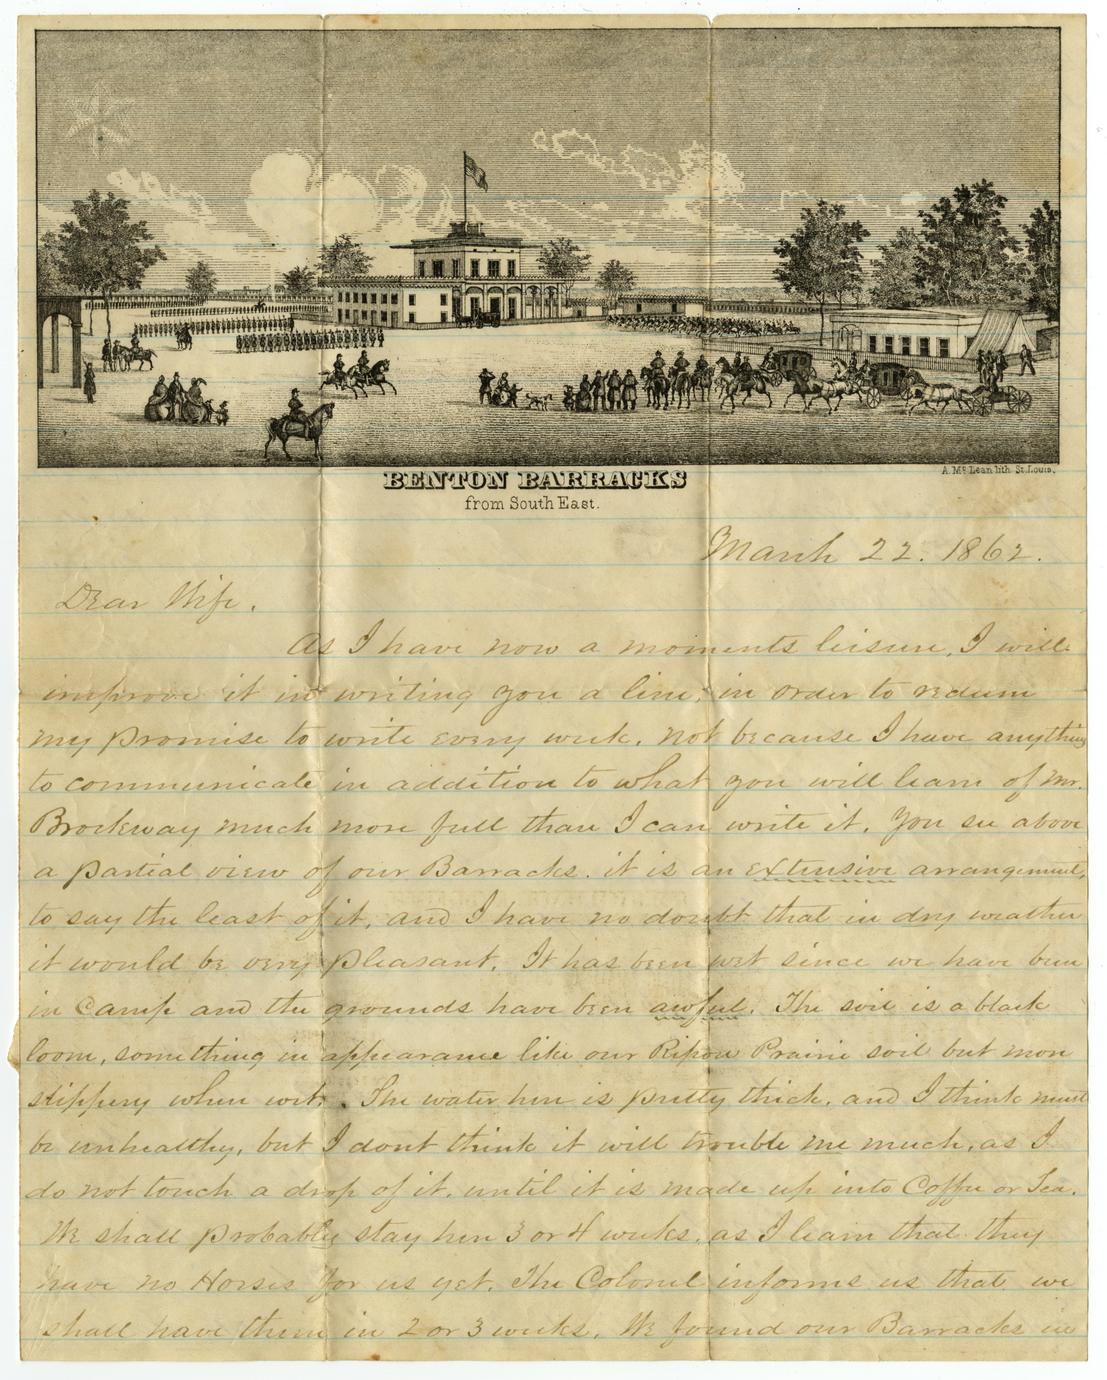 A. Mc Lean lith. St. Louis.
BENTON BARRACKS
from South East.
March 22. 1862.
Dear Wife.
As I have now a moments leisure, I will
improve it in writing you a line, in order to redeem
my promise to write every week. not because I have anything
to communicate in addition to what you will learn of Mr.
Brockway much more full than I can write it. You see above
a partial view of our Barracks. it is an extensive arrangement,
to say the least of it, and I have no doubt that in dry weather
it would be very pleasant. It has been wet since we have been
in Camp and the grounds have been awful. The soil is a black
loom, something in appearance like our Ripon Prairie soil but more
slippery when wet. The water here is pretty thick. and I think must
be unhealthy, but I dont think it will trouble me much, as I
do not touch a drop of it. until it is made up into Coffee or Tea.
We shall probably stay here 3 or 4 weeks. as I learn that they
have no Horses for us yet. The Colonel informs us that we
shall have them in 2 or 3 weeks. We found our Barracks in